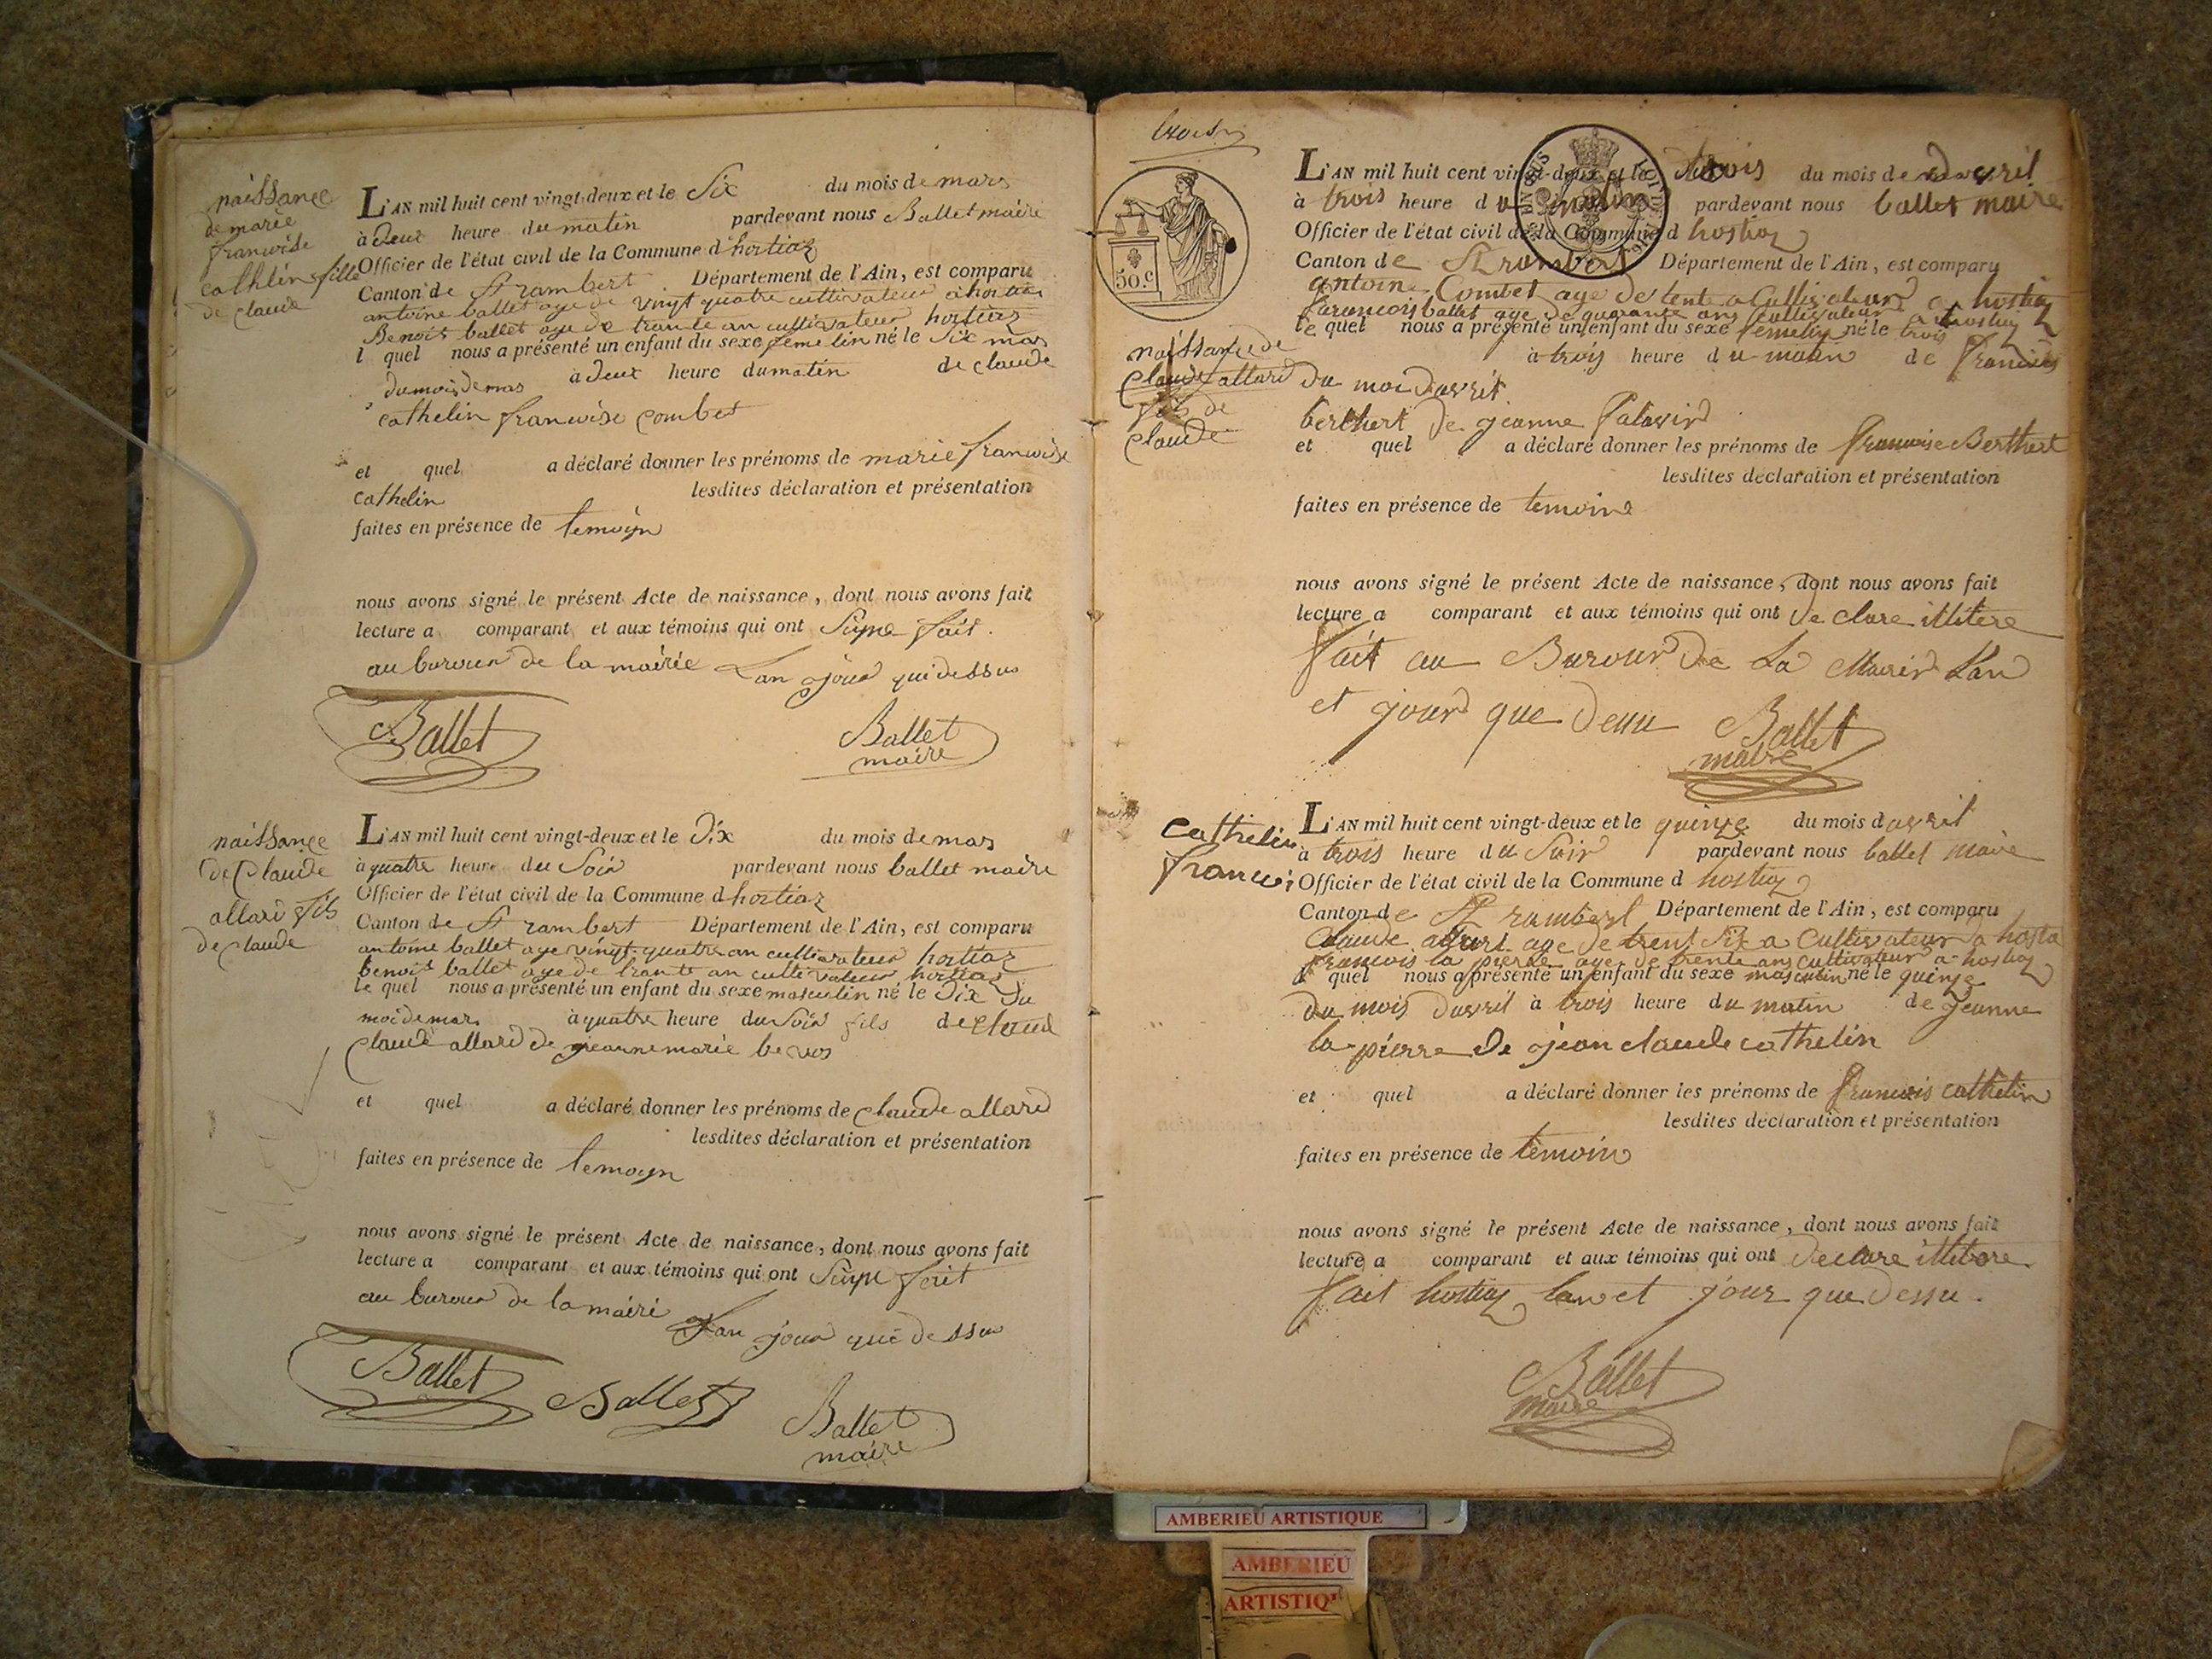 naissance
de marie
franwise
cathlin fille
de claude
L'AN mil huit cent vingt-deux et le Six du mois de mars
à deux heure du matin pardevant nous Ballet maire
Officier de l'état civil de la Commune d'hortiaz
Canton de St rambert Département de l'Ain, est comparu
antoine ballet aye de vingt quatre cultivateur a hortiaz
Benoit ballet aye de trante an cultivateur hortiaz
l quel nous a présenté un enfant du sexe femelin né le Six mars
du mois de mas à deux heure du matin de claude
cathelin franwise combet
et quel a déclaré donner les prénoms de marie franwise
cathelin lesdites déclaration et présentation
faites en présence de temoyn
nous avons signé le présent Acte de naissance, dont nous avons fait
lecture a comparant et aux témoins qui ont Signe fait
au burour de la mairie Lan jour qui dessus
Ballet Ballet
maire
naissance
de Claude
allard fils
de claude
L'AN mil huit cent vingt-deux et le Dix du mois de mars
à quatre heure du Soir pardevant nous ballet maire
Officier de l'état civil de la Commune d hortiaz
Canton de St rambert Département de l'Ain, est comparu
antoine ballet aye vingt quatre an cultivateur hortiaz
benoit ballet aye de trante an cultivateur hortiaz
le quel nous a présenté un enfant du sexe masculin né le Dix Du
moi de mars à quatre heure du Soir fils de
Claude allard de jeanne marie
et quel a déclaré donner les prénoms de claude allard
lesdites déclaration et présentation
faites en présence de temoyn
nous avons signé le présent Acte de naissance, dont nous avons fait
lecture a comparant et aux témoins qui ont Signe fait
au burour de la mairi Lan jour que dessus
Ballet Ballet Ballet
maire
trois
50.c
L'AN mil huit cent vingt-deux et le trois du mois de davril
à trois heure du matin pardevant nous ballet maire
Officier de l'état civil de la Commune d hostiaz
Canton de St rambert Département de l'Ain, est comparu
antoine Combet age de tente a Cultivateur a hostiaz
francois ballet age de quarante ans Cultivateur a hostiaz
le quel nous a présenté un enfant du sexe femelin né le trois
à trois heure du matin de francois
naissance de
Claude allard
fils de
claude
du moi davril
berthert de jeanne
et quel a déclaré donner les prénoms de francoise Berthert
lesdites déclaration et présentation
faites en présence de temoins
nous avons signé le présent Acte de naissance, dont nous avons fait
lecture a comparant et aux témoins qui ont de clare illitere
fait au Burour De La Mairir Lan
et jour que dessu Ballet
maire
Cathelin
francoi
L'AN mil huit cent vingt-deux et le quinze du mois d avril
à trois heure du Soir pardevant nous ballet maire
Officier de l'état civil de la Commune d hostiaz
Canton de St rambert Département de l'Ain, est comparu
Claude allard age de trent Six a Cultivateur a hostia
francois la pierre age de trente ans cultivateur a hostiaz
l quel nous a présenté un enfant du sexe masculin né le quinze
du mois davril à trois heure du matin de jeanne
la pierre de jean claude cathelin
et quel a déclaré donner les prénoms de francois cathelin
lesdites déclaration et présentation
faites en présence de temoins
nous avons signé le présent Acte de naissance, dont nous avons fait
lecture a comparant et aux témoins qui ont declare illitere
fait hostiaz lan et jour que dessu
Ballet
maire
AMBERIEU ARTISTIQUE
AMBERIEU
ARTISTIQ